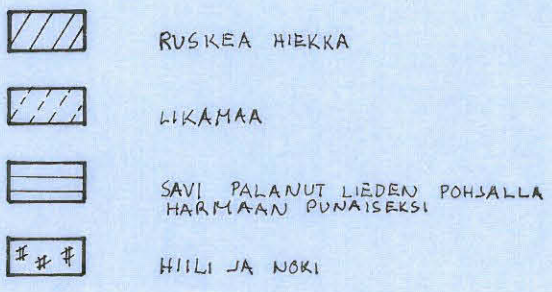 RUSKEA HIEKKA
LIKAMAA
SAVI PALANUT LIEDEN POHJALLA
HARMAAN PUNAISEKSI
HIILI JA NOKI